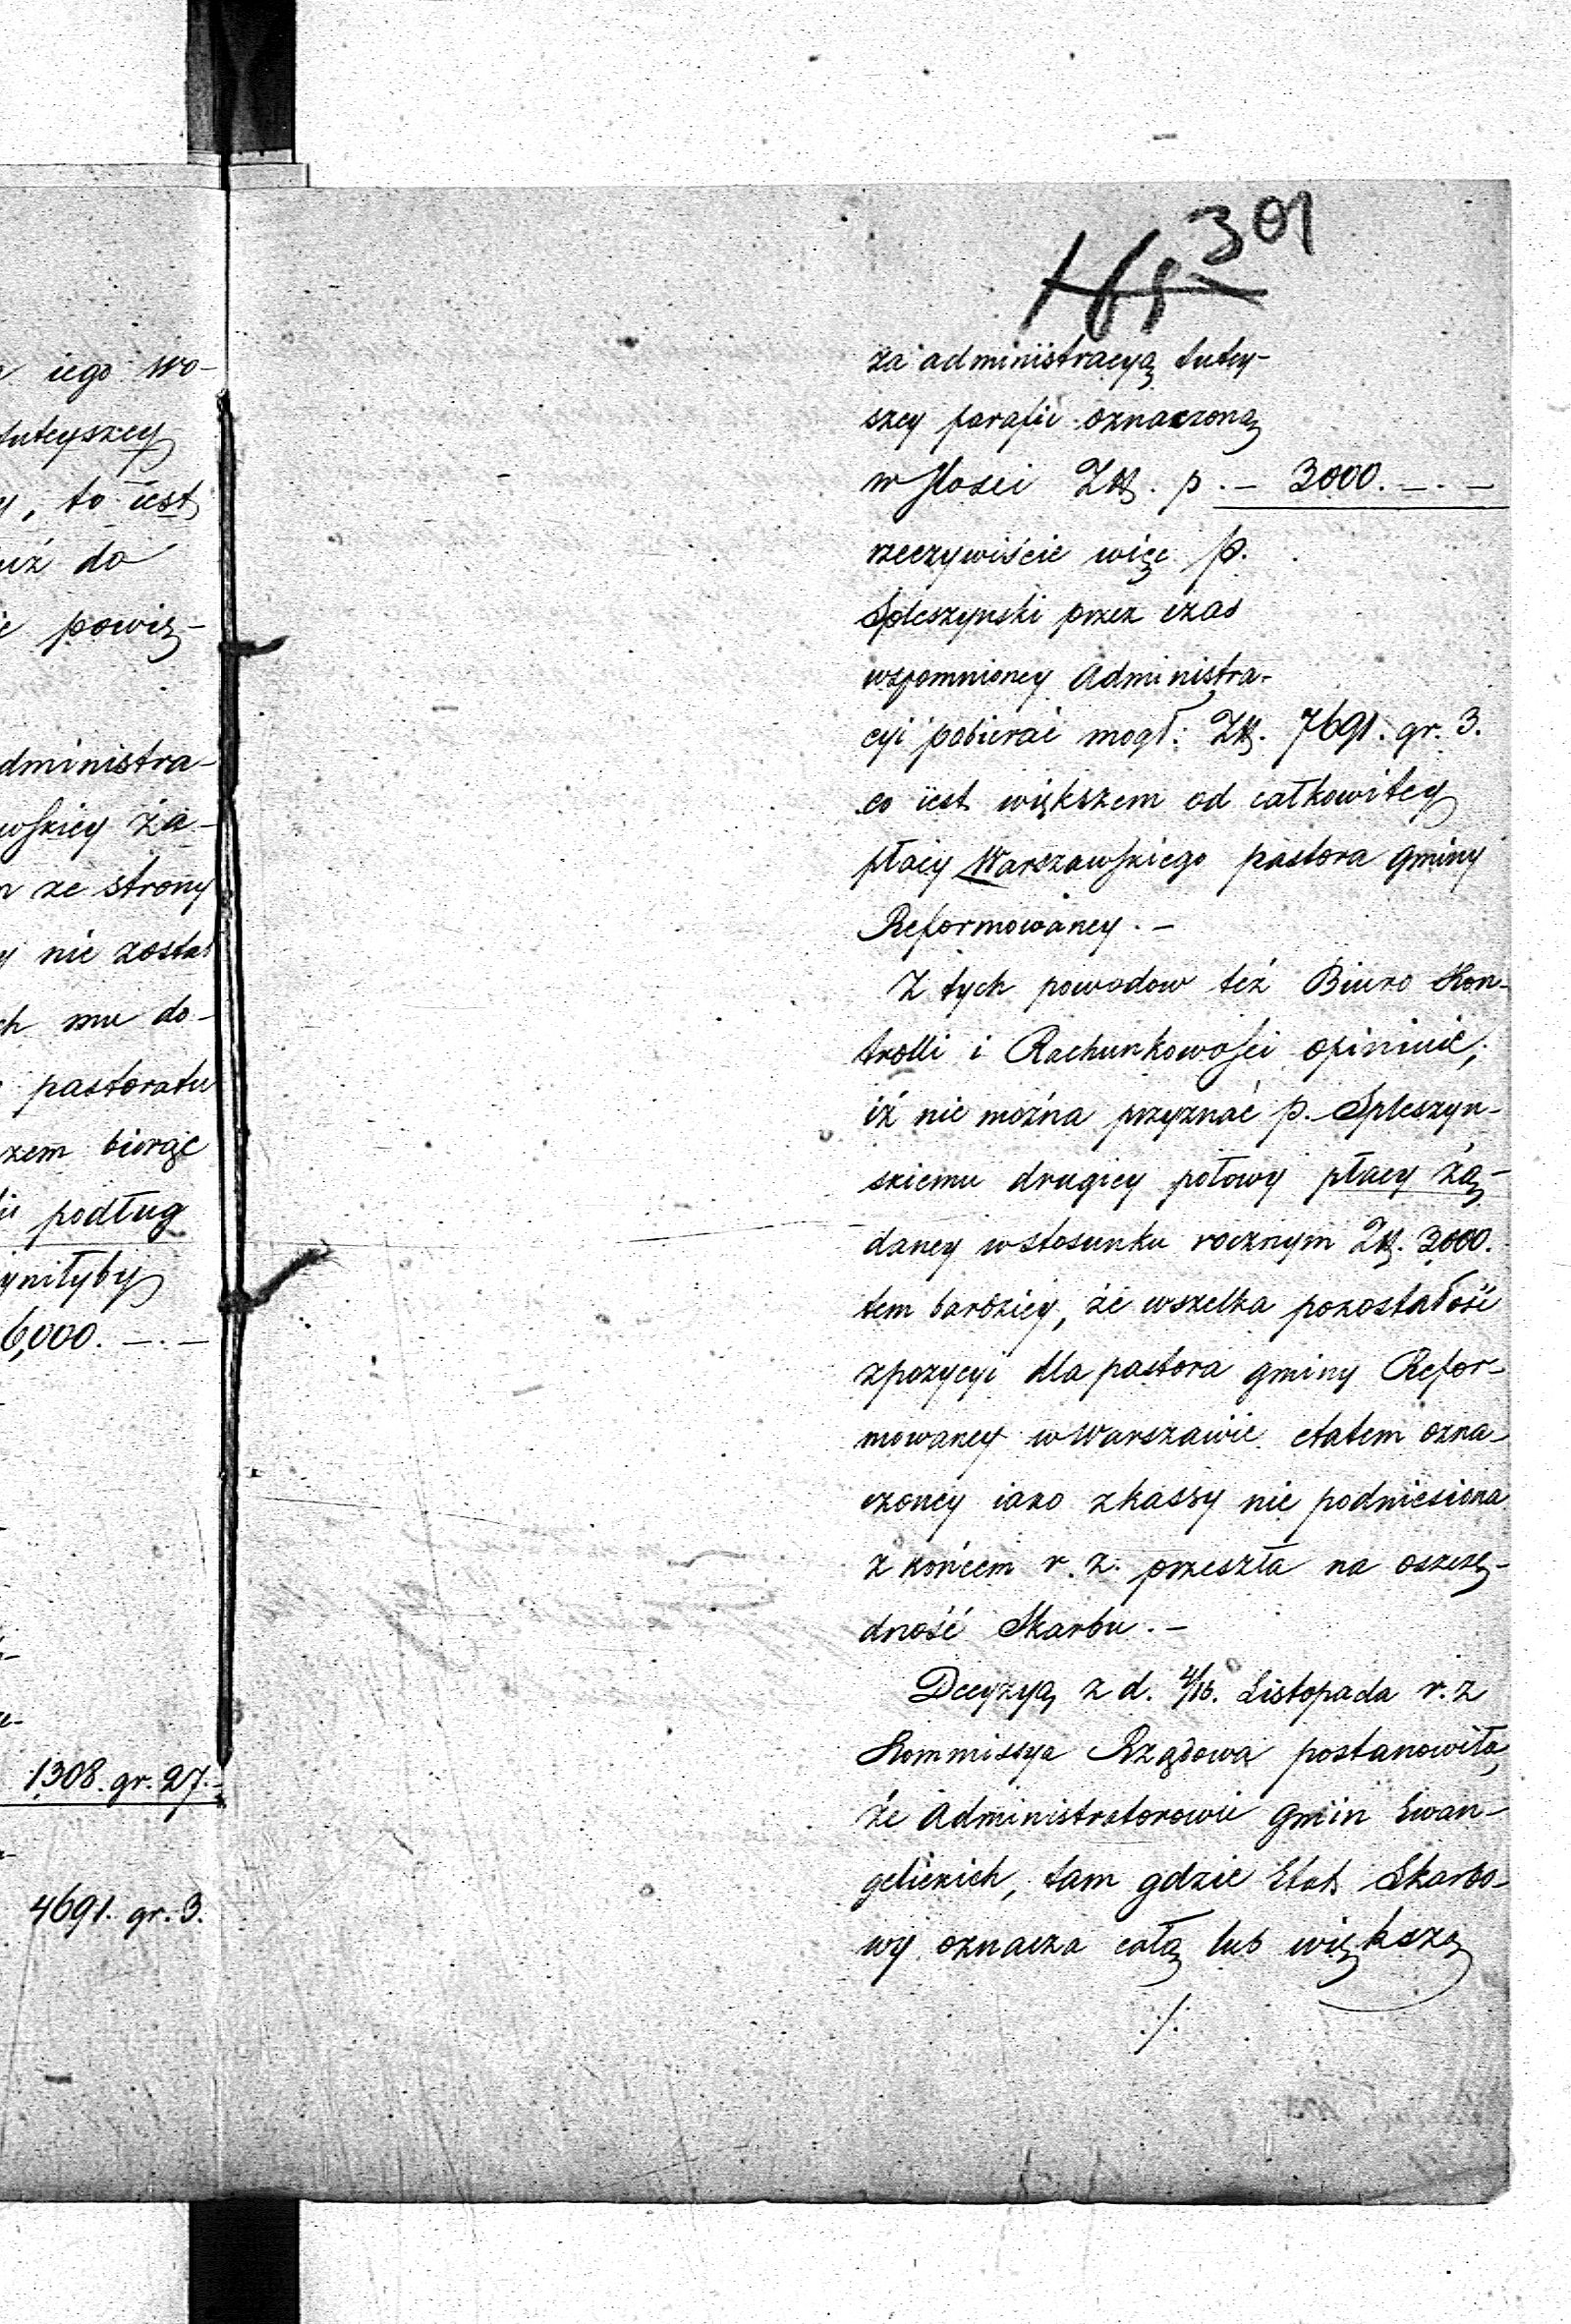 iego wo-
tuteyszey
, to iest
iuż do
powię-
dministra-
wskiey żą-
ze strony
nie został
ch mu do-
pastoratu
zem biorąc
podług
yniłyby
6,000. —.—
1308. gr. 27.-
4691. gr. 3.
301
za administracyą tutey-
szey parafii oznaczoną
w ilości Zł. p. — 3000. —.—
rzeczywiście więc p.
Spleszyński przez czas
wspomnioney Administra-
cyi pobierać mógł: Zł. 7691. gr. 3.
co iest większem od całkowitey
płacy Warszawskiego pastora gminy
Reformowaney. —
Z tych powodow też Biuro Kon-
trolli i Rachunkowości opiniuie,
iż nie można przyznać p. Spleszyn-
skiemu drugiey połowy płacy żą-
daney w stosunku rocznym Zł. 3000.
tem bardziey, że wszelka pozostałość
z pozycyi dla pastora gminy Refor-
mowaney w Warszawie etatem ozna-
czoney iako z kassy nie podniesiona
z końcem r. z. przeszła na oszczę-
dność Skarbu. —
Decyzyą z d. 4/16. Listopada r. z
Kommissya Rządowa postanowiła,
że Administratorowie gmin Ewan-
gelickich, tam gdzie Etat Skarbo-
wy oznacza całą lub większą
./.